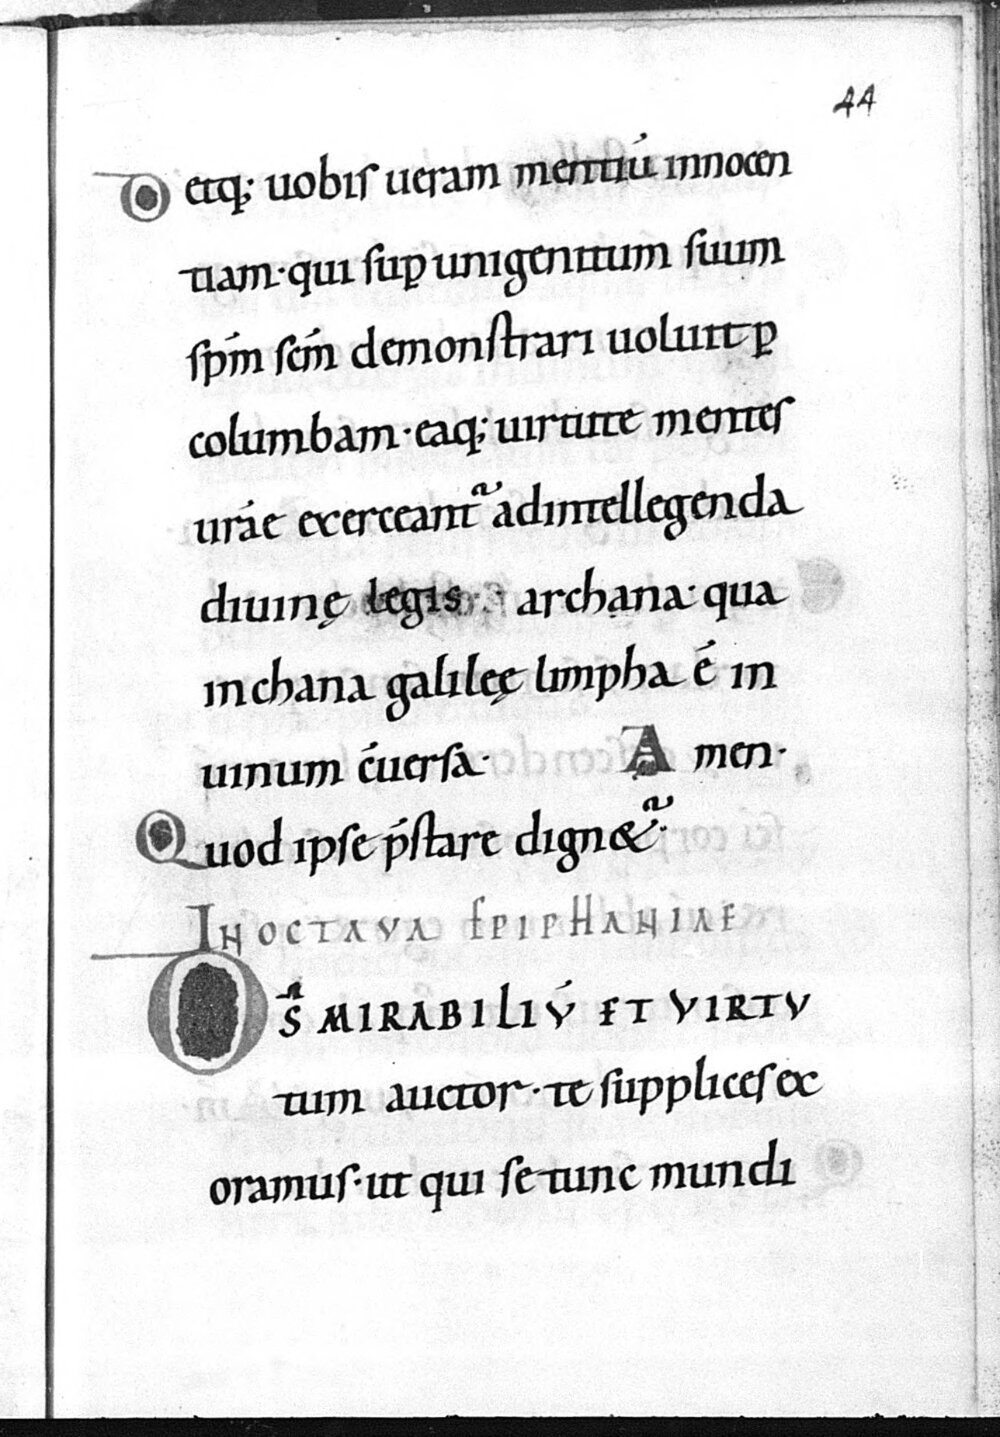 44
Detq; uobiſ ueram mentiū innocen
tiam · qui ſuꝑ unigenitum ſuum
ſpm̄ ſcm̄ demonſtrari uoluit ꝑ
columbam · eaq; uirtute menteſ
uráe exerceant᷑ adintellegenda
diuinę legis · archana · qua
inchana galileę limpha ē in
uinum c̄uerſa · Amen ·
Quod ipſe p̄ſtare dign&᷑ ·
IN OCTAVA EPIPHANIAE
OS̄ MIRABILIV̄ ET VIRTV
tum auctor · te ſuppliceſ ex
oramuſ · ut qui ſe tunc mundi